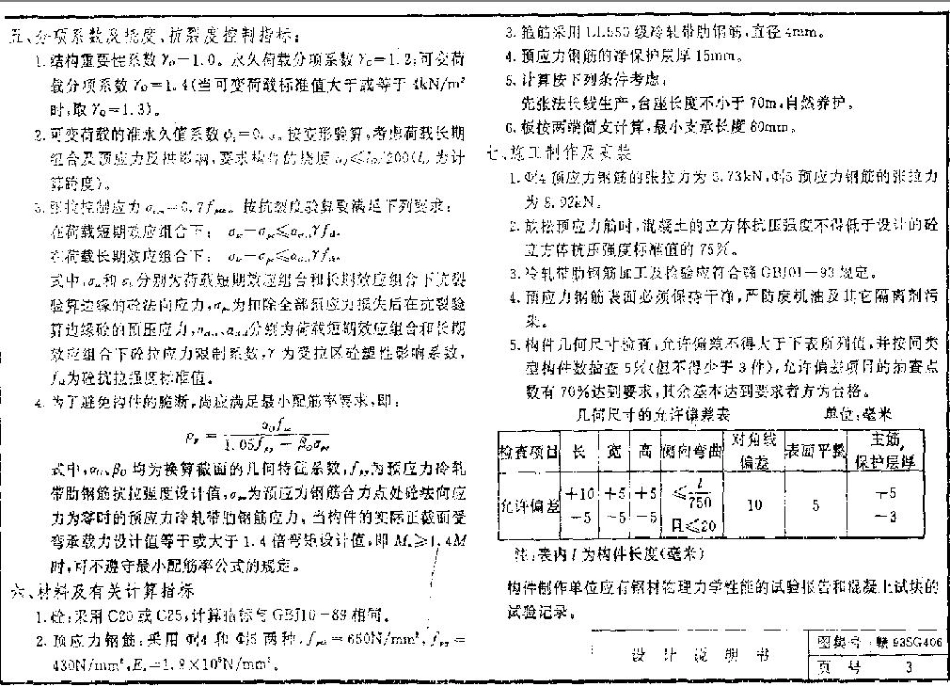 五、分项系数及挠度、抗裂度控制指标:
1. 结构重要性系数 γ₀=1.0。永久荷载分项系数 γG=1.2;可变荷
载分项系数 γQ=1.4(当可变荷载标准值大于或等于 4kN/m²
时,取 γQ=1.3)。
2. 可变荷载的准永久值系数 按变形验算,考虑荷载长期
组合及预应力反拱影响,要求构件的挠度 /200( 为计
算跨度)。
3. 张拉控制应力 按抗裂度验算要满足下列要求:
在荷载短期效应组合下:
在荷载长期效应组合下:
式中, 和 分别为荷载短期效应组合和长期效应组合下抗裂
验算边缘的砼法向应力, 为扣除全部预应力损失后在抗裂验
算边缘砼的预压应力, 分别为荷载短期效应组合和长期
效应组合下砼拉应力限制系数,γ 为受拉区砼塑性影响系数,
为砼抗拉强度标准值。
4. 为了避免构件的脆断,尚应满足最小配筋率要求,即:
式中, β₀ 均为换算截面的几何特征系数, 为预应力冷轧
带肋钢筋抗拉强度设计值, 为预应力钢筋合力点处砼法向应
力为零时的预应力冷轧带肋钢筋应力,当构件的实际正截面受
弯承载力设计值等于或大于 1.4 倍弯矩设计值,即 Mᵤ≥1.4M
时,可不遵守最小配筋率公式的规定。
六、材料及有关计算指标
1. 砼:采用 C20 或 C25,计算指标与 GBJ10-89 相同。
2. 预应力钢筋:采用 4 和 5 两种. =650N/mm², =
430N/mm², =1.9×10⁵N/mm²。
3. 箍筋采用 LL550 级冷轧带肋钢筋,直径 4mm。
4. 预应力钢筋的净保护层厚 15mm。
5. 计算按下列条件考虑:
先张法长线生产,台座长度不小于 70m,自然养护。
6. 板按两端简支计算,最小支承长度 80mm。
七、施工制作及安装
1. 4 预应力钢筋的张拉力为 5.73kN, 5 预应力钢筋的张拉力
为 8.92kN。
2. 放松预应力筋时,混凝土的立方体抗压强度不得低于设计的砼
立方体抗压强度标准值的 75%。
3. 冷轧带肋钢筋加工及检验应符合 规定。
4. 预应力钢筋表面必须保持干净,严防废机油及其它隔离剂污
染。
5. 构件几何尺寸检查,允许偏差不得大于下表所列值,并按同类
型构件数抽查 5%(但不得少于 3 件),允许偏差项目的抽查点
数有 70%达到要求,其余基本达到要求者方为合格。
几何尺寸的允许偏差表 单位:毫米
检查项目 长 宽 高 侧向弯曲 对角线偏差 表面平整 主筋保护层厚
允许偏差 +10 -5 +5 -5 +5 -5 ≤l/750 且≤20 10 5 +5 -3
注:表内 l 为构件长度(毫米)
构件制作单位应有钢材物理力学性能的试验报告和混凝土试块的
试验记录。
设计说明书
图集号 赣 93SG406
页 号 3